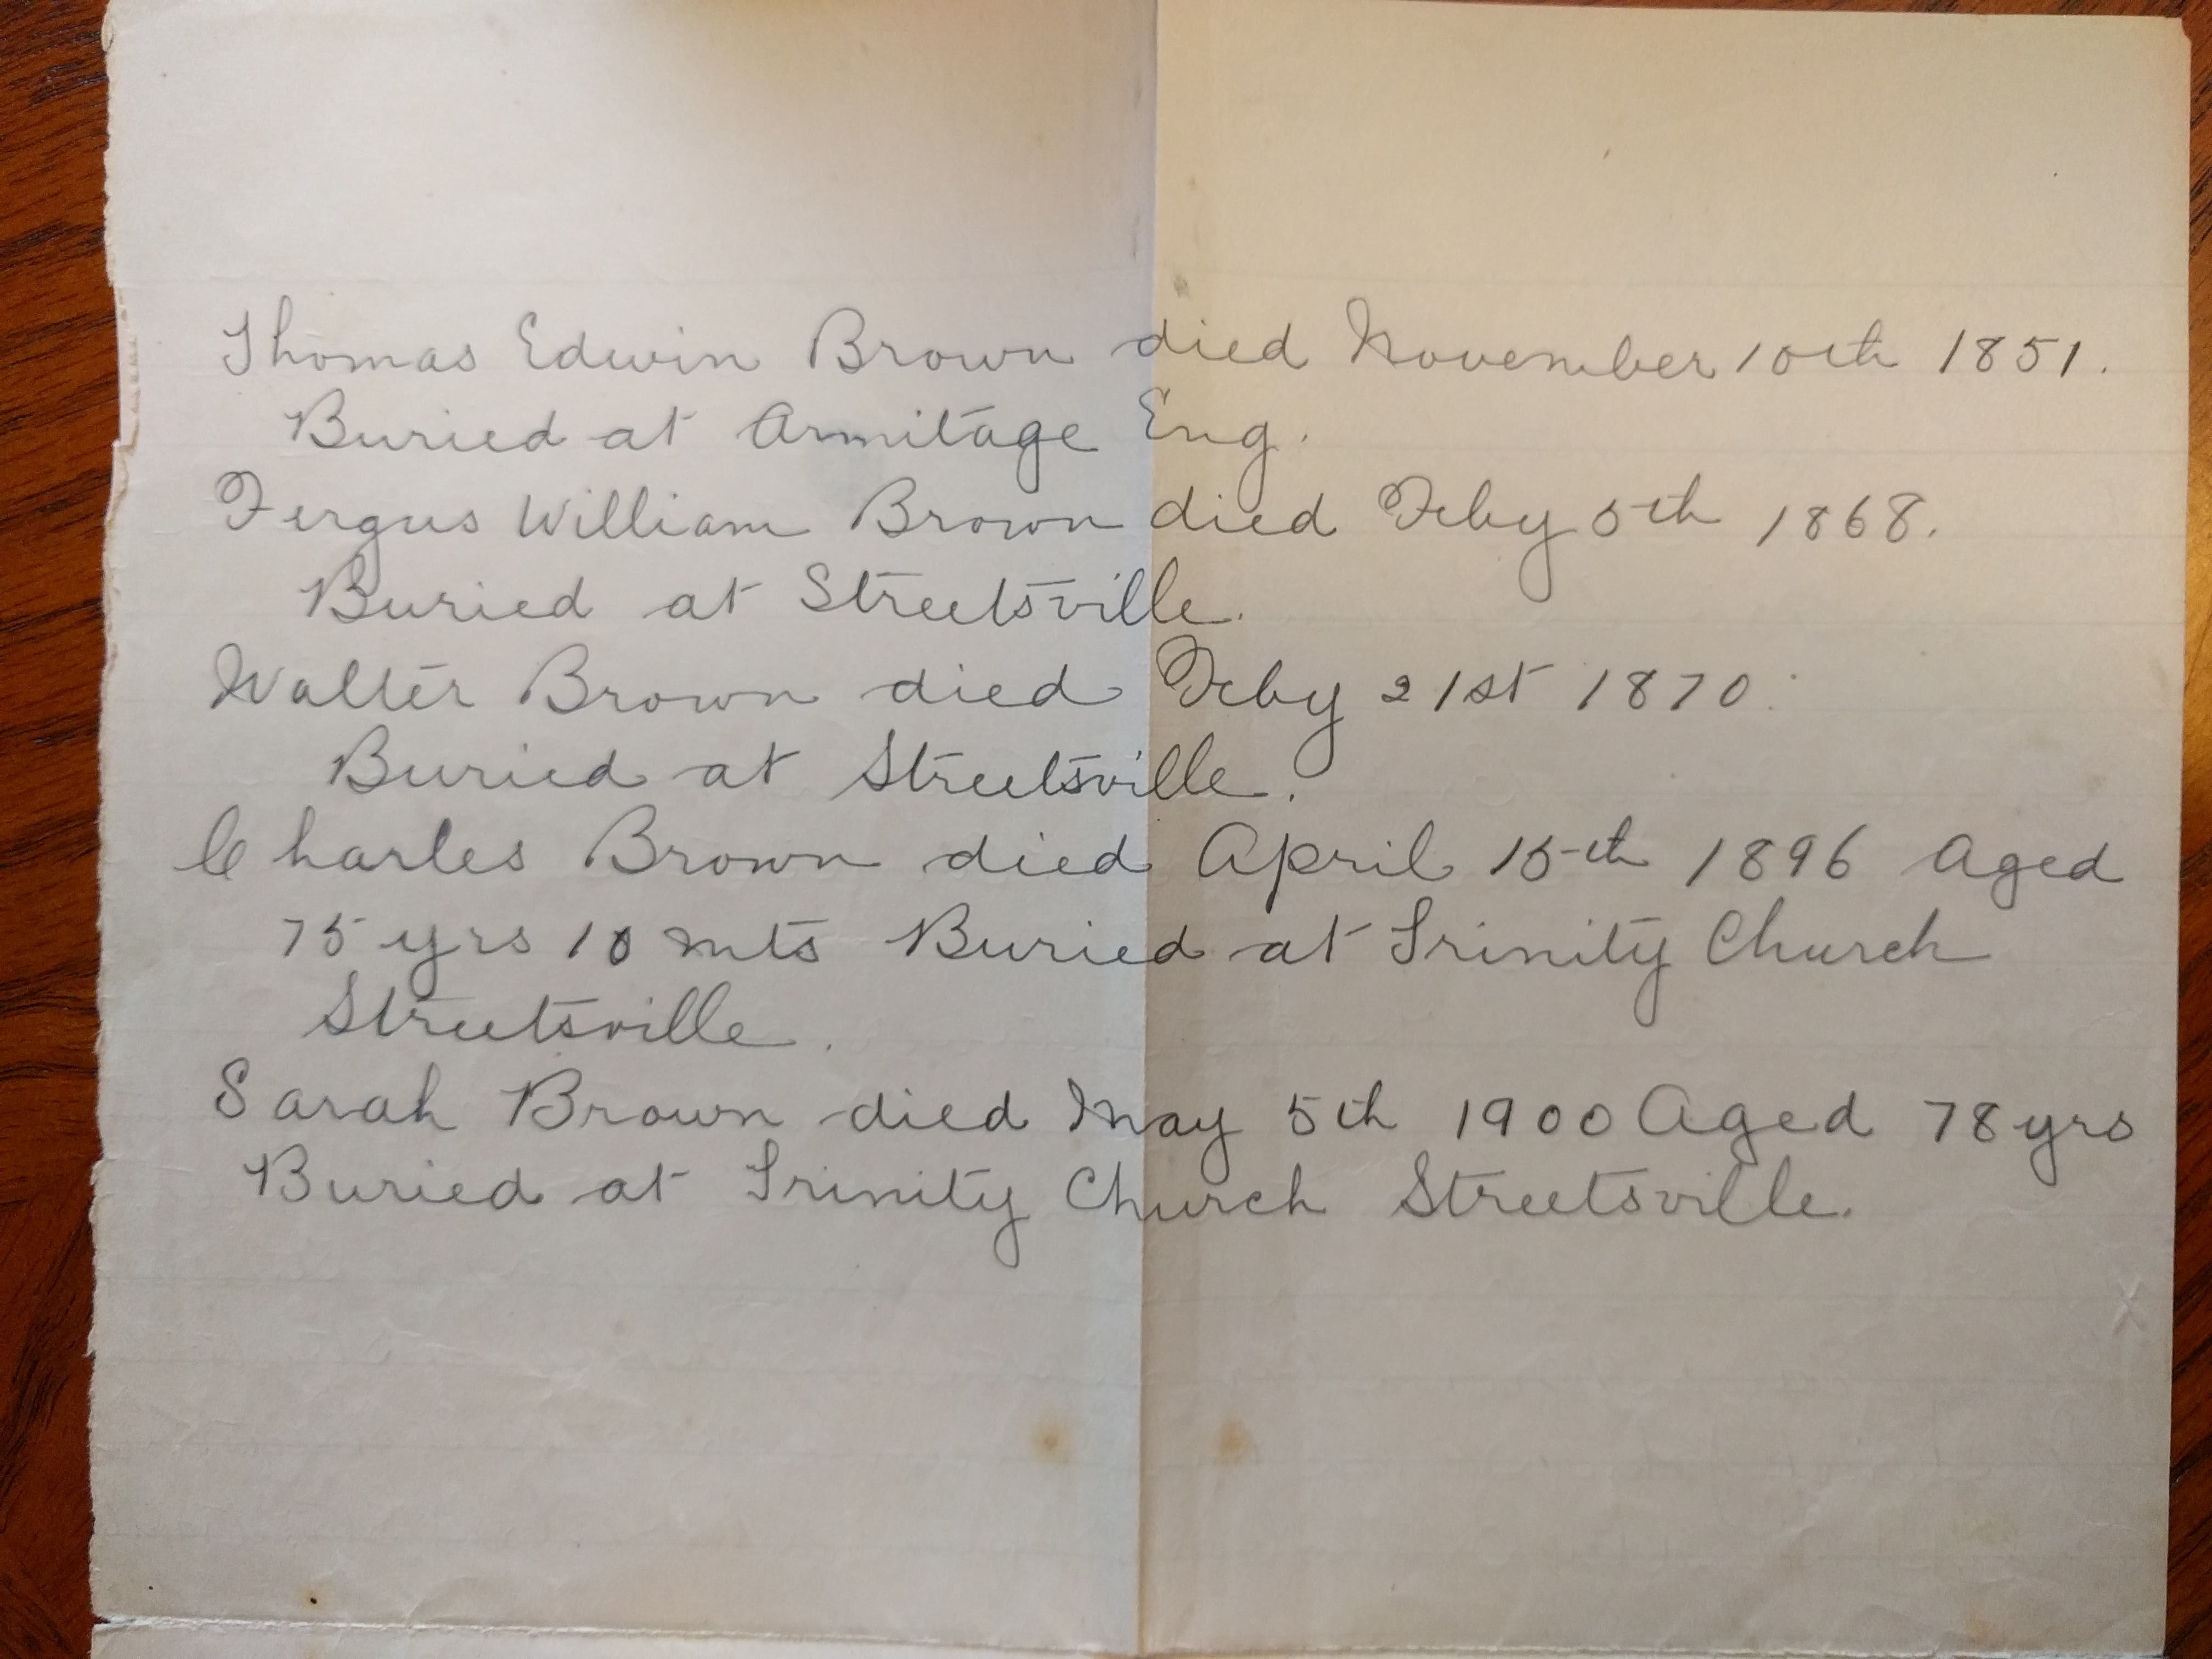 Thomas Edwin Brown died November 10th 1851.
Buried at Armitage Eng.
Fergus William Brown died Feby 5th 1868.
Buried at Streetsville.
Walter Brown died Feby 21st 1870.
Buried at Streetsville.
Charles Brown died April 15th 1896 Aged
75 yrs 10 mts Buried at Trinity Church
Streetsville.
Sarah Brown died May 5th 1900 Aged 78 yrs
Buried at Trinity Church Streetsville.